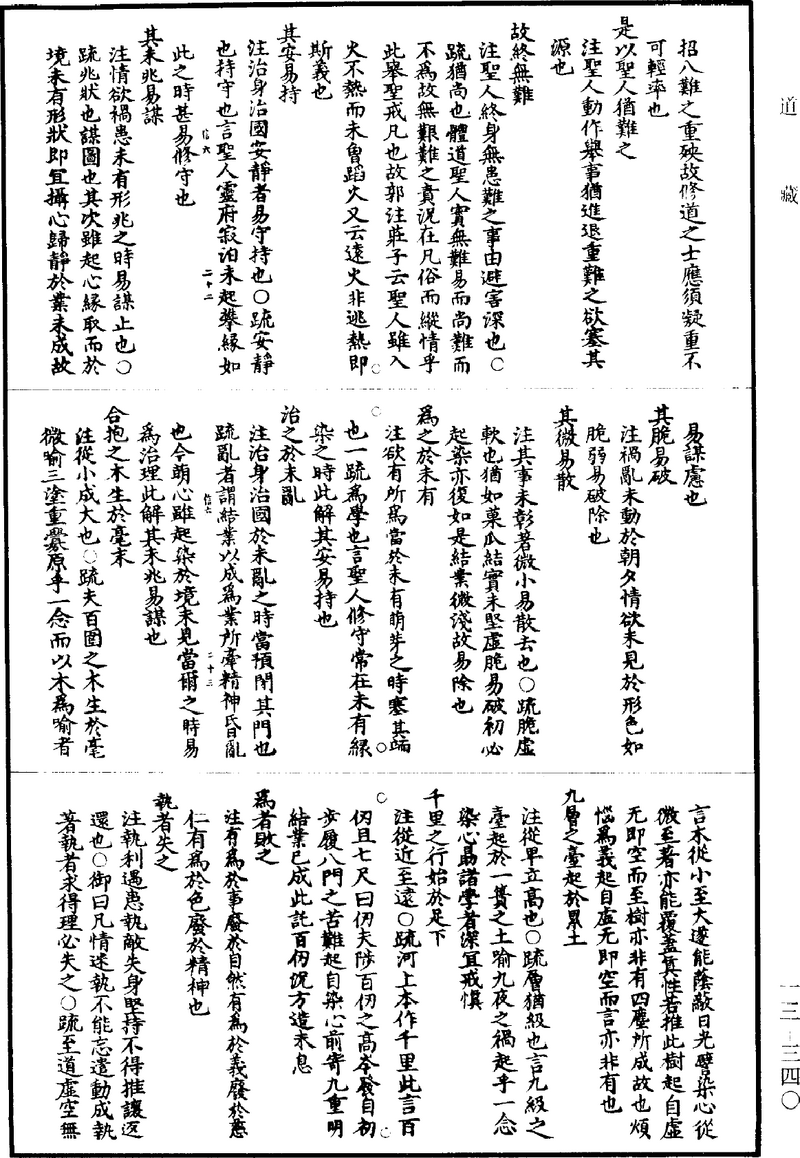 道藏
招八難之重殃故修道之士應須凝重不
可輕率也
是以聖人猶難之
注聖人動作舉事猶進退重難之欲塞其
源也
故終無難
注聖人終身無患難之事由避害深也○
疏猶尚也體道聖人實無難易而尚難而
不為故無艱難之責況在凡俗而縱情乎
此舉聖戒凡也故郭注莊子云聖人雖入
火不熱而未曾蹈火又云遠火非逃熱即
斯義也
其安易持
注治身治國安靜者易守持也○疏安靜
也持守也言聖人靈府寂泊未起攀緣如
信六 二十二
此之時甚易修守也
其未兆易謀
注情欲禍患未有形兆之時易謀止也○
疏兆狀也謀圖也其次雖起心緣取而於
境未有形狀即宜攝心歸靜於業未成故
易謀慮也
其脆易破
注禍亂未動於朝夕情欲未見於形色如
脆弱易破除也
其微易散
注其事未彰著微小易散去也○疏脆虛
軟也猶如菓瓜結實未堅虛脆易破初心
起染亦復如是結業微淺故易除也
為之於未有
注欲有所為當於未有萌芽之時塞其端
也一疏為學也言聖人修守常在未有緣
染之時此解其安易持也
治之於未亂
注治身治國於未亂之時當預閉其門也
疏亂者謂結業以成為業所牽精神昏亂
信六 二十三
也今萌心雖起染於境未見當爾之時易
為治理此解其未兆易謀也
合抱之木生於毫末
注從小成大也○疏夫百圍之木生於毫
微喻三塗重釁原乎一念而以木為喻者
言木從小至大遂能蔭蔽日光譬染心從
微至著亦能覆蓋真性若推此樹起自虛
无即空而至樹亦非有四塵所成故也煩
惱為義起自虛无即空而言亦非有也
九層之臺起於累土
注從卑立高也○疏層猶級也言九級之
臺起於一簣之土喻九夜之禍起乎一念
染心爲諸學者深宜戒慎
千里之行始於足下
注從近至遠○疏河上本作千里此言百
仞且七尺曰仞夫陟百仞之高夲發自初
步履八門之苦難起自染心前寄九重明
結業已成此託百仞況方造未息
為者敗之
注有為於事廢於自然有為於義廢於慈
仁有為於色廢於精神也
執者失之
注執利遇患執敵失身堅持不得推讓返
還也○御曰凡情迷執不能忘遣動成執
著執者求得理必失之○疏至道虛空無
一三—三四〇